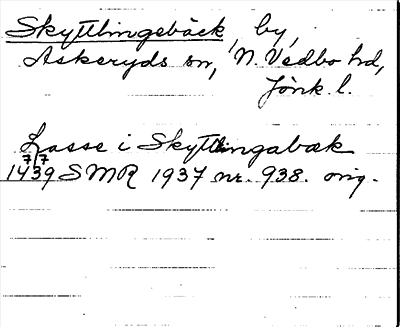 Skyttlingebäck, by,
Askeryds sn, N. Vedbo hd,
Jönk. l.
Lasse i Skyttlingabæk
7/7
1439 SMR 1937 nr. 938. orig.